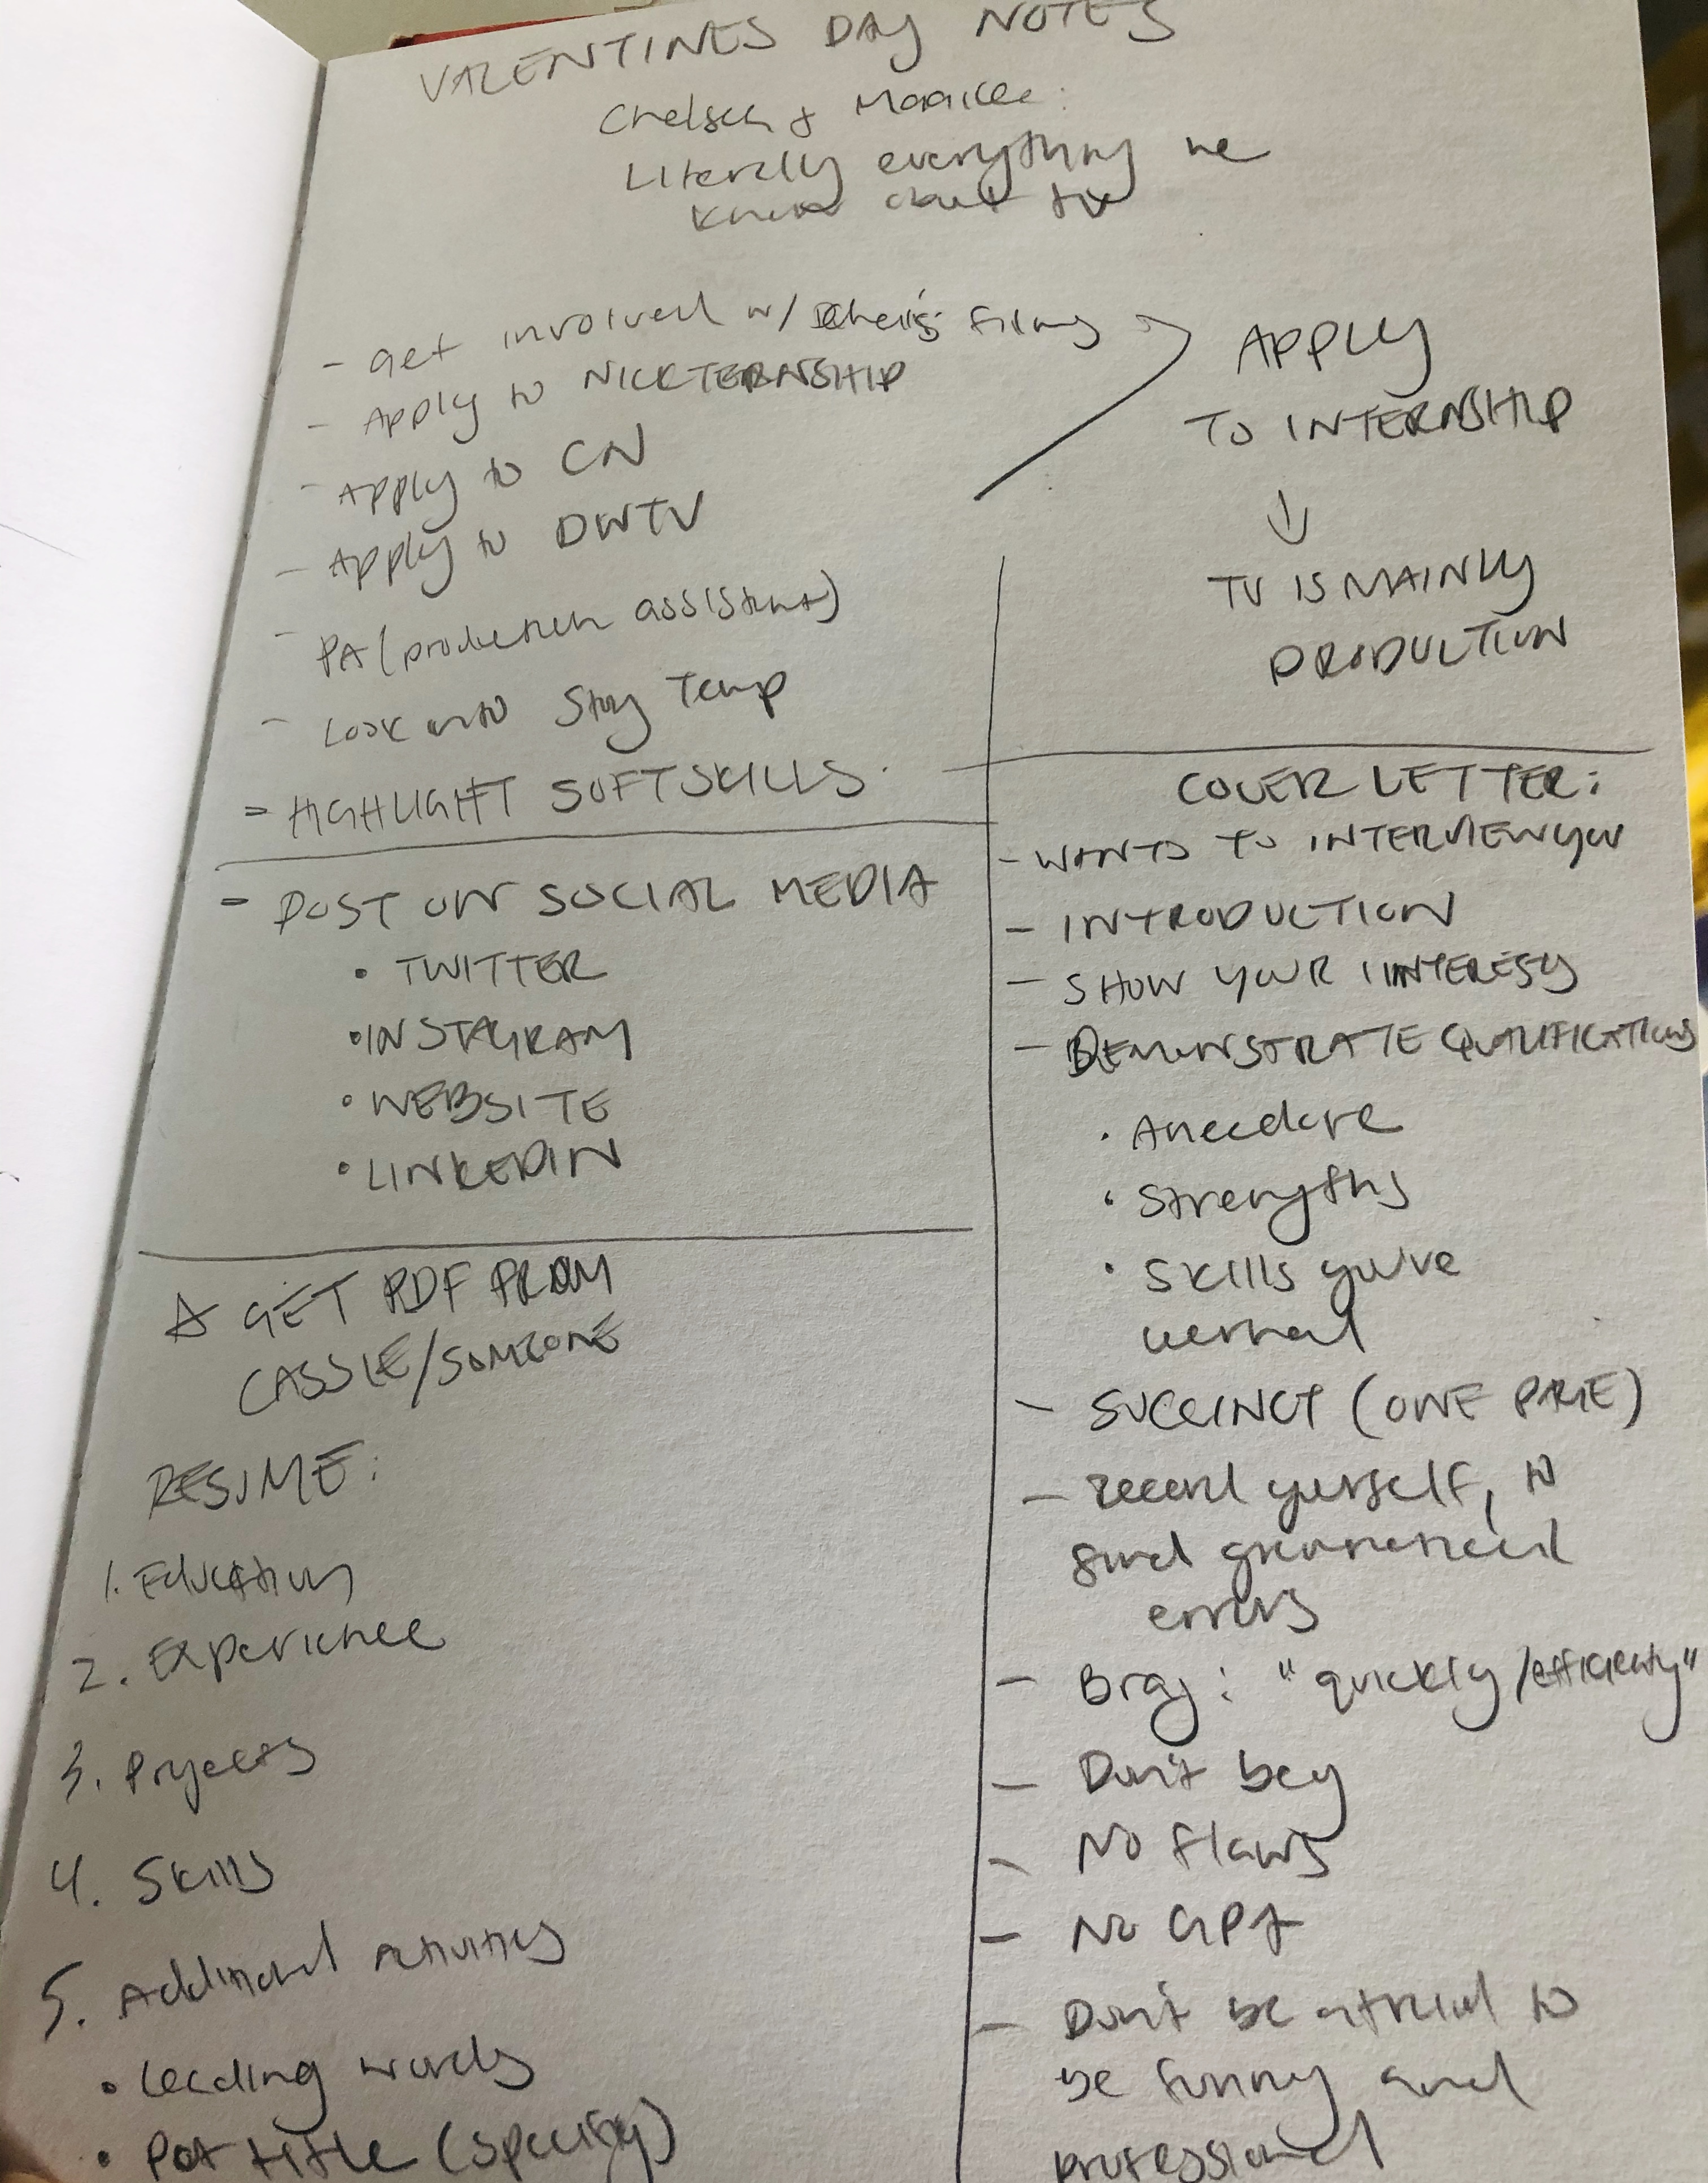 VALENTINES DAY NOTES
Chelsea &
Literally everything we
know about tv
- get involved w/ films
- Apply to NICKTERNSHIP
- Apply to CN
- Apply to DWTV
- PA (production assistant)
- Look into Stay Temp
- HIGHLIGHT SOFT SKILLS.
- POST ON SOCIAL MEDIA
• TWITTER
• INSTAGRAM
• WEBSITE
• LINKEDIN
☆ GET PDF FROM
CASSIE/SOMEONE
RESUME:
1. Education
2. Experience
3. Projects
4. Skills
5. Additional Activities
• leading words
• Put title (specify)
APPLY
TO INTERNSHIP
↓
TV IS MAINLY
PRODUCTION
COVER LETTER:
- WANTS TO INTERVIEW YOU
- INTRODUCTION
- SHOW YOUR INTERESTS
- DEMONSTRATE QUALIFICATIONS
• Anecdote
• Strengths
• Skills you've
learned
- SUCCINCT (ONE PAGE)
- record yourself, to
find grammatical
errors
- Brag: "quickly/efficiently"
- Don't beg
- No flaws
- No GPA
- Don't be afraid to
be funny and
professional